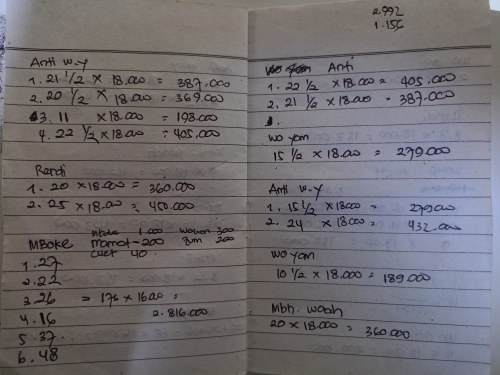 Anti w.y
1. 21 1/2 × 18.000 = 387.000
2. 20 1/2 × 18.000 = 369.000
3. 11 × 18.000 = 198.000
4. 22 1/2 × 18.000 = 405.000
Rendi
1. 20 × 18.000 = 360.000
2. 25 × 18.000 = 450.000
MBoke
1.000 300
mamat - 200 200
cuet 40
1. 27
2. 22
3. 26 = 176 × 16.00 =
4. 16 2.816.000
5. 37
6. 48
2.992
1.156
Anti
1. 22 1/2 × 18.000 = 405.000
2. 21 1/2 × 18.000 = 387.000
wo yam
15 1/2 × 18.000 = 279.000
Anti w.y
1. 15 1/2 × 18000 = 279.000
2. 24 × 18.000 = 432.000
wo yam
10 1/2 × 18.000 = 189.000
Mbh. woah
20 × 18.000 = 360.000